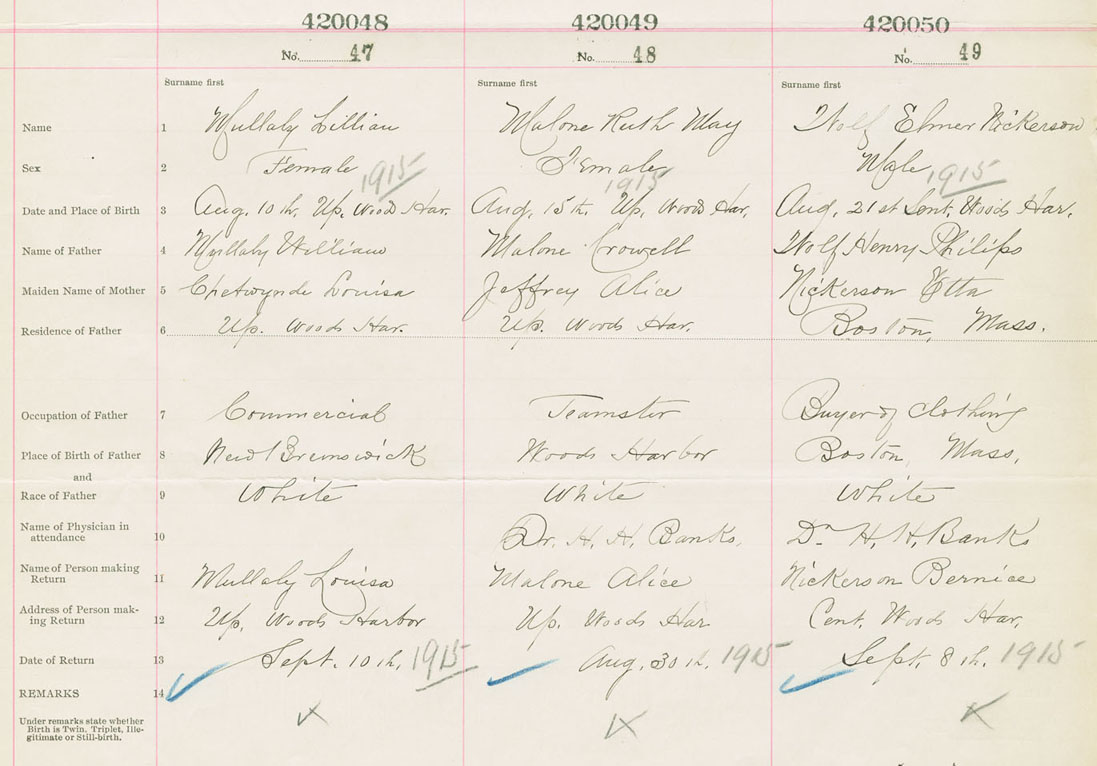 420048 420049 420050
No. 47 No. 48 No. 49
Surname first Surname first Surname first
Name 1 Mullaly Lillian Malone Ruth May Wolf Elmer Nickerson
Sex 2 Female Female Male
1915 1915 1915
Date and Place of Birth 3 Aug. 10th, Up. Woods Har. Aug. 15th. Up. Woods Har. Aug. 21st Cent. Woods Har.
Name of Father 4 Mullaly William Malone Crowell Wolf Henry Philips
Maiden Name of Mother 5 Chetwynde Louisa Jeffrey Alice Nickerson Etta
Residence of Father 6 Up. Woods Har. Up. Woods Har. Boston, Mass.
Occupation of Father 7 Commercial Teamster Buyer of Clothing
Place of Birth of Father 8 New Brunswick Woods Harbor Boston, Mass.
and
Race of Father 9 White White White
Name of Physician in
attendance 10 Dr. H. H. Banks. Dr H. H. Banks
Name of Person making
Return 11 Mullaly Louisa Malone Alice Nickerson Bernice
Address of Person mak-
ing Return 12 Up. Woods Harbor Up. Woods Har Cent. Woods Har.
Date of Return 13 Sept. 10th, 1915 Aug. 30th. 1915 Sept. 8th. 1915
REMARKS 14
Under remarks state whether
Birth is Twin, Triplet, Ille-
gitimate or Still-birth.